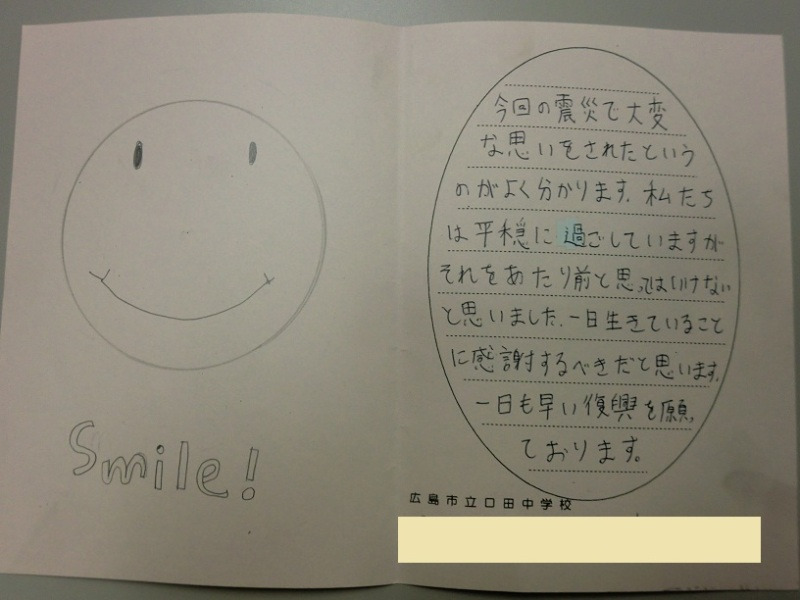 Smile!
今回の震災で大変
な思いをされたという
のがよく分かります。私たち
は平穏に過ごしていますが
それをあたり前と思ってはいけない
と思いました。一日生きていること
に感謝するべきだと思います。
一日も早い復興を願っ
ております。
広島市立口田中学校